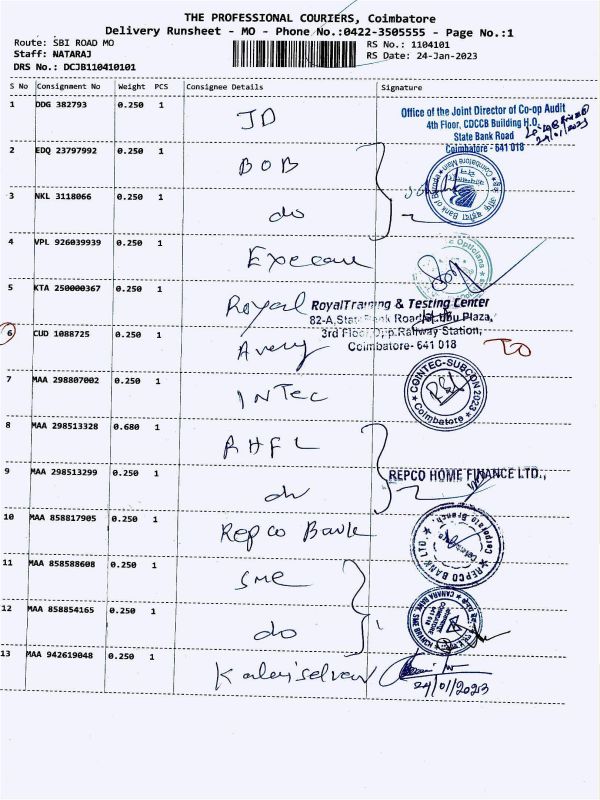 THE PROFESSIONAL COURIERS, Coimbatore
Delivery Runsheet - MO - Phone No.:0422-3505555 - Page No.:1
Route: SBI ROAD MO
Staff: NATARAJ
DRS No.: DCJB110410101
RS No.: 1104101
RS Date: 24-Jan-2023
S No Consignment No Weight PCS Consignee Details Signature
1 DDG 382793 0.250 1 JD
Office of the Joint Director of Co-op Audit
4th Floor, CDCCB Building H.O.
State Bank Road
Coimbatore - 641 018
24/01/2023
2 EDQ 23797992 0.250 1 BOB
3 NKL 3118066 0.250 1 do
4 VPL 926039939 0.250 1
Opticians
5 KTA 250000367 0.250 1 Royal
RoyalTraining & Testing Center
82-A, State Bank Road, Plaza,
3rd Floor, Opp.Railway Station,
Coimbatore- 641 018
6 CUD 1088725 0.250 1 Avery
7 MAA 298807002 0.250 1 INTEC
COINTEC-SUBCON 2023
Coimbatore
8 MAA 298513328 0.680 1 RHFL
9 MAA 298513299 0.250 1 do
REPCO HOME FINANCE LTD.,
10 MAA 858817905 0.250 1 Repco Bank
REPCO BANK LTD.
11 MAA 858588608 0.250 1 SME
12 MAA 858854165 0.250 1 do
CANARA BANK, SME BRANCH
COIMBATORE
641 018
13 MAA 942619048 0.250 1 Kalaiselvan
24/01/2023